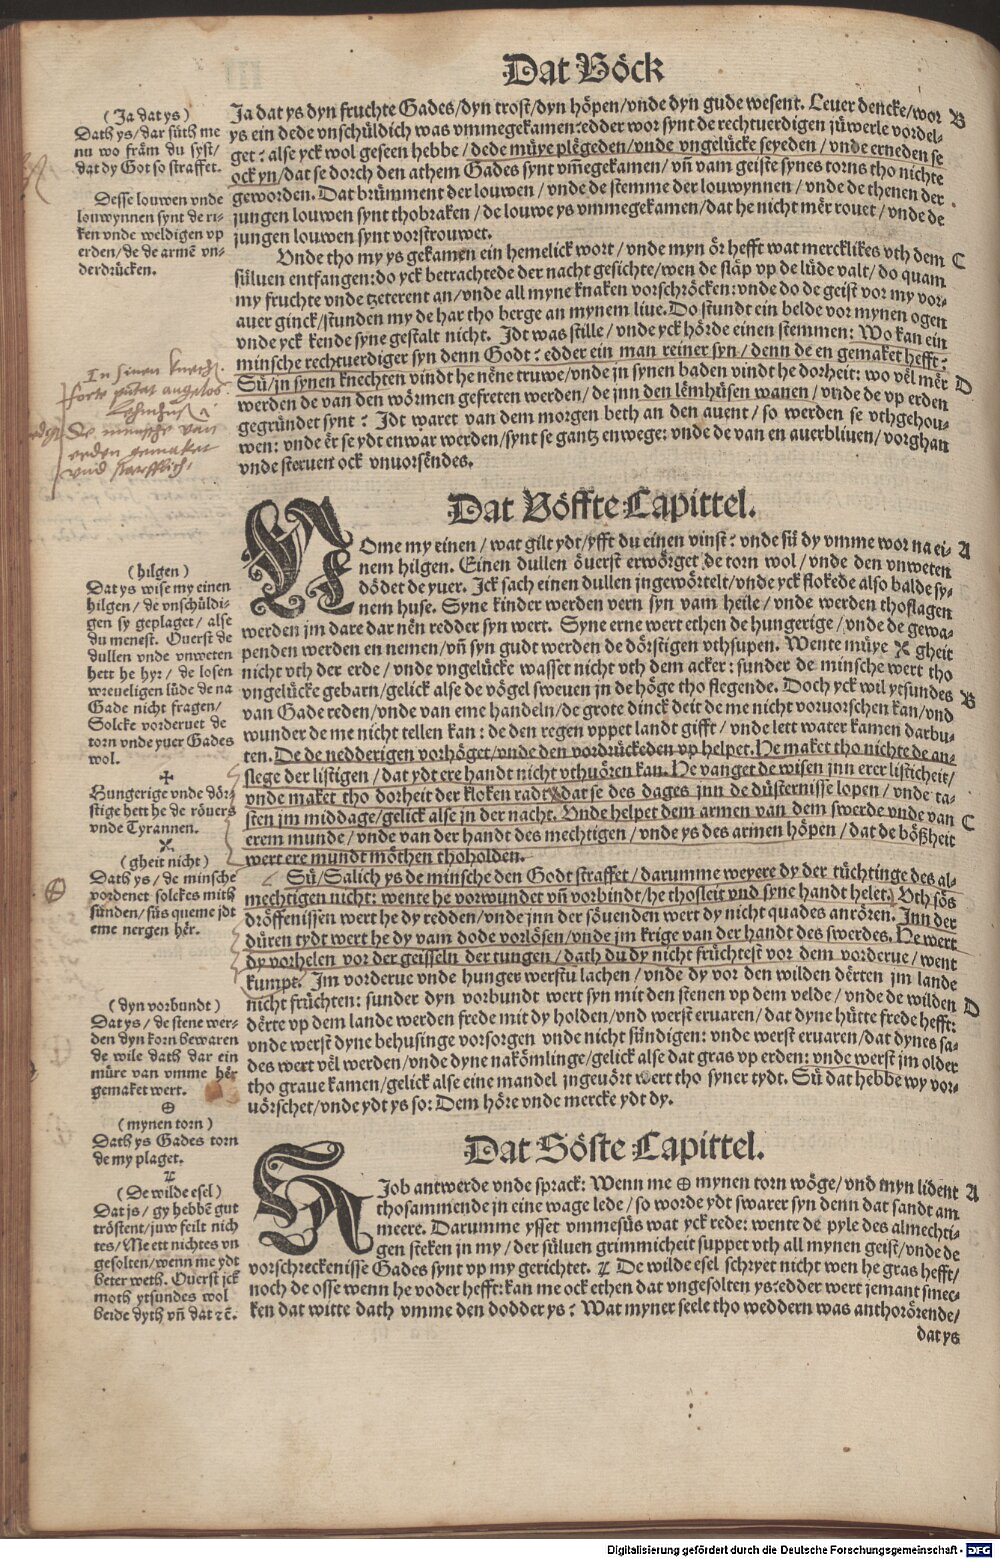 Dat Böck
Ja dat ys dyn fruchte Gades/dyn trost/dyn höpen/vnde dyn gude wesent. Leuer dencke/wor B
ys ein dede vnschüldich was vmmegekamen:edder wor synt de rechtuerdigen jüwerle vordel-
get? alse yck wol geseen hebbe/dede müye plegeden/vnde vngelücke seyeden/vnde erneden se
ock yn/dat se dorch den athem Gades synt vmegekamen/vñ vam geiste synes torns tho nichte
geworden. Dat brümment der louwen/vnde de stemme der louwynnen/vnde de thenen der
jungen louwen synt thobraken/de louwe ys vmmegekamen/dat he nicht mer rouet/vnde de
jungen louwen synt vorstrouwet.
Vnde tho my ys gekamen ein hemelick wort/vnde myn ör hefft wat mercklikes vth dem C
süluen entfangen:do yck betrachtede der nacht gesichte/wen de släp vp de lüde valt/do quam
my fruchte vnde tzeterent an/vnde all myne knaken vorschröcken:vnde do de geist vor my vor-
auer ginck/stunden my de har tho berge an mynem liue. Do stundt ein belde vor mynen ogen
vnde yck kende syne gestalt nicht. Jdt was stille/vnde yck hörde einen stemmen: Wo kan ein
minsche rechtuerdiger syn denn Godt? edder ein man reiner syn/denn de en gemaket hefft?
Sü/jn synen knechten vindt he nene truwe/vnde jn synen baden vindt he dorheit: wo vel mer D
werden de van den wörmen gefreten werden/de jnn den lemhüsen wanen/vnde de vp erden
gegründet synt? Jdt waret van dem morgen beth an den auent/so werden se vthgehou-
wen: vnde er se ydt enwar werden/synt se gantz enwege: vnde de van en auerbliuen/vorghan
vnde steruen ock vnuorsendes.
Dat Vöffte Capittel.
NOme my einen/wat gilt ydt/yfft du einen vinst? vnde sü dy vmme wor na ei- A
nem hilgen. Einen dullen öuerst erwörget de torn wol/vnde den vnweten
dödet de yuer. Jck sach einen dullen jngewörtelt/vnde yck flokede also balde sy-
nem huse. Syne kinder werden vern syn vam heile/vnde werden thoslagen
werden jm dare dar nen redder syn wert. Syne erne wert ethen de hungerige/vnde de gewa-
penden werden en nemen/vñ syn gudt werden de dörstigen vthsupen. Wente müye ⨯ gheit
nicht vth der erde/vnde vngelücke wasset nicht vth dem acker: sunder de minsche wert tho
vngelücke gebarn/gelick alse de vögel sweuen jn de höge tho flegende. Doch yck wil ytsundes B
van Gade reden/vnde van eme handeln/de grote dinck deit de me nicht voruorschen kan/vnd
wunder de me nicht tellen kan: de den regen vppet landt gifft/vnde lett water kamen darbu-
ten. De de nedderigen vorhöget/vnde den vordrückeden vp helpet. He maket tho nichte de an-
slege der listigen/dat ydt ere handt nicht vthuören kan. He vanget de wisen jnn erer listicheit/
vnde maket tho dorheit der kloken radt/dat se des dages jnn de düsternisse lopen/vnde ta-
sten jm middage/gelick alse jn der nacht. Vnde helpet dem armen van dem swerde vnde van C
erem munde/vnde van der handt des mechtigen/vnde ys des armen höpen/dat de bößheit
wert ere mundt möthen thoholden.
Sü/Salich ys de minsche den Godt straffet/darumme weyere dy der tüchtinge des al-
mechtigen nicht: wente he vorwundet vñ vorbindt/he thosleit vnd syne handt helet. Vth sös
dröffenissen wert he dy redden/vnde jnn der söuenden wert dy nicht quades anrören. Jnn der
düren tydt wert he dy vam dode vorlösen/vnde jm krige van der handt des swerdes. He wert
dy vorhelen vor der geisseln der tungen/dath du dy nicht früchtest vor dem vorderue/went
kumpt. Jm vorderue vnde hunger werstu lachen/vnde dy vor den wilden derten jm lande
nicht früchten: sunder dyn vorbundt wert syn mit den stenen vp dem velde/vnde de wilden D
derte vp dem lande werden frede mit dy holden/vnd werst eruaren/dat dyne hütte frede hefft:
vnde werst dyne behusinge vorsorgen vnde nicht sündigen: vnde werst eruaren/dat dynes sa-
des wert vel werden/vnde dyne nakömlinge/gelick alse dat gras vp erden: vnde werst jm older
tho graue kamen/gelick alse eine mandel jngeuört wert tho syner tydt. Sü dat hebbe wy vor-
uörschet/vnde ydt ys so: Dem höre vnde mercke ydt dy.
Dat Söste Capittel.
HJob antwerde vnde sprack: Wenn me ⊕ mynen torn wöge/vnd myn lident A
thosammende jn eine wage lede/so worde ydt swarer syn denn dat sandt am
meere. Darumme ysset vmmesüs wat yck rede: wente de pyle des almechti-
gen steken jn my/der süluen grimmicheit suppet vth all mynen geist/vnde de
vorschreckenisse Gades synt vp my gerichtet. ⁊ De wilde esel schryet nicht wen he gras hefft/
noch de osse wenn he voder hefft:kan me ock ethen dat vngesolten ys?edder wert jemant smec-
ken dat witte dath vmme den dodder ys? Wat myner seele tho weddern was anthorörende/
dat ys
(Ja dat ys)
Dath ys/dar süth me
nu wo fram du syst/
dat dy Got so straffet.
Desse louwen vnde
louwynnen synt de ri-
ken vnde weldigen vp
erden/de de arme vn-
derdrücken.
In sinen knech
forte putat angelos
De minsche van
erden gemaket
vnd sterfflich
(hilgen)
Dat ys wise my einen
hilgen/de vnschüldi-
gen sy geplaget/alse
du menest. Ouerst de
dullen vnde vnweten
hett he hyr/de losen
wreueligen lüde de na
Gade nicht fragen/
Solcke vorderuet de
torn vnde yuer Gades
wol.
✢
Hungerige vnde dör-
stige hett he de röuers
vnde Tyrannen.
⨯
(gheit nicht)
Dath ys/de minsche
vordenet solckes mith
sünden/süs queme jdt
eme nergen her.
(dyn vorbundt)
Dat ys/de stene wer-
den dyn korn bewaren
de wile dath dar ein
müre van vmme her
gemaket wert.
⊕
(mynen torn)
Dath ys Gades torn
de my plaget.
⁊
(De wilde esel)
Dat js/gy hebbe gut
tröstent/juw feilt nich
tes/Me ett nichtes vn
gesolten/wenn me ydt
beter weth. Ouerst jck
moth ytsundes wol
beide dyth vñ dat ⁊c̄.
Digitalisierung gefördert durch die Deutsche Forschungsgemeinschaft - DFG